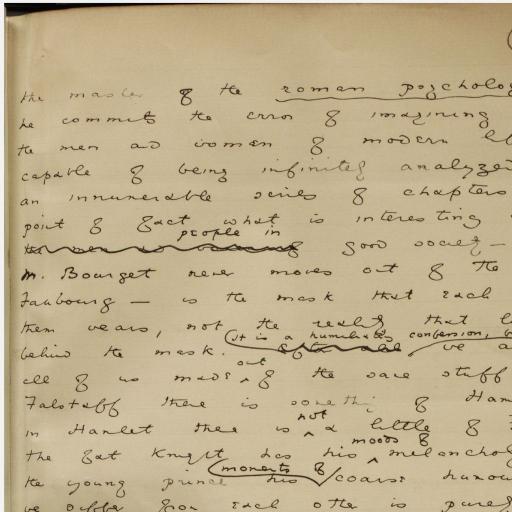 the master of the roman psycholog
he commits the error of imagining
the men and women of modern li
capable of being infinitely analyzed
an innumerable series of chapters
point of fact what is interesting
people in
good society —
M. Bourget never moves out of the
Faubourg — is the mask that each
them wears, not the reality that l
it is a humiliating confession, b
behind the mask. we a
out
all of us made of the same stuff
Falstaff there is something of Ham
not
in Hamlet there is a little of F
moods of
The fat Knight has his melanchol
moments of
the young prince his coarse humou
we differ from each other is purel